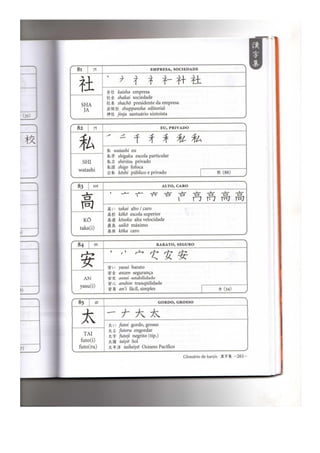 漢字集
81 EMPRESA, SOCIEDADE
社
SHA
JA
会社 kaisha empresa
社会 shakai sociedade
社長 shachō presidente da empresa
出版社 shuppansha editorial
神社 jinja santuário xintoísta
82 EU, PRIVADO
私
SHI
watashi
私 watashi eu
私学 shigaku escola particular
私立 shiritsu privado
公私 kōshi público e privado
83 ALTO, CARO
高
KŌ
taka(i)
高い takai alto / caro
高校 kōkō escola superior
高速 kōsoku alta velocidade
最高 saikō máximo
高価 kōka caro
84 BARATO, SEGURO
安
AN
yasu(i)
安い yasui barato
安全 anzen segurança
安定 antei estabilidade
安心 anshin tranquilidade
安易 an'i fácil, simples
85 GORDO, GROSSO
太
TAI
futo(i)
futo(ru)
太い futoi gordo, grosso
太る futoru engordar
太字 futoji negrito (tip.)
太陽 taiyō Sol
太平洋 taiheiyō Oceano Pacífico
Glossário de kanjis 漢字集 -261-
校